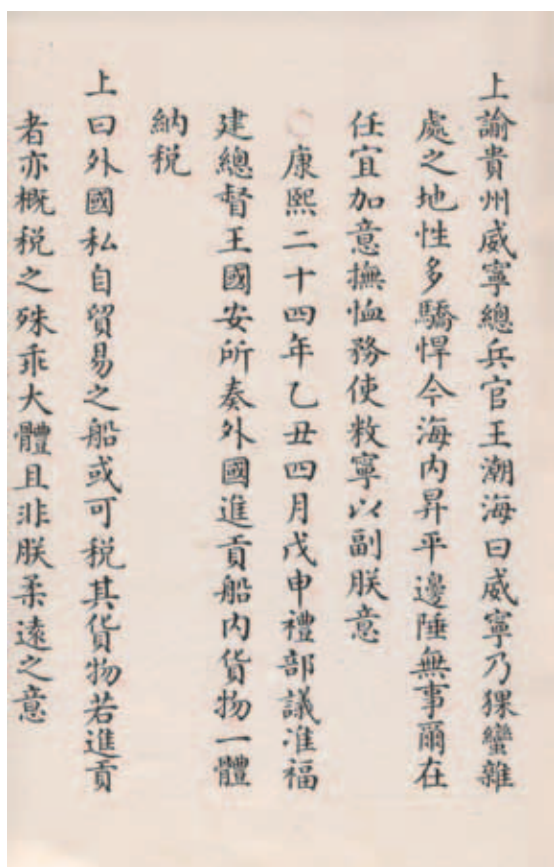 上諭貴州威寧總兵官王潮海曰威寧乃猓蠻雜
處之地性多驕悍今海內昇平邊陲無事爾在
任宜加意撫恤務使敉寧以副朕意
○康熙二十四年乙丑四月戊申禮部議准福
建總督王國安所奏外國進貢船內貨物一體
納税
上曰外國私自貿易之船或可税其貨物若進貢
者亦概税之殊乖大體且非朕柔遠之意